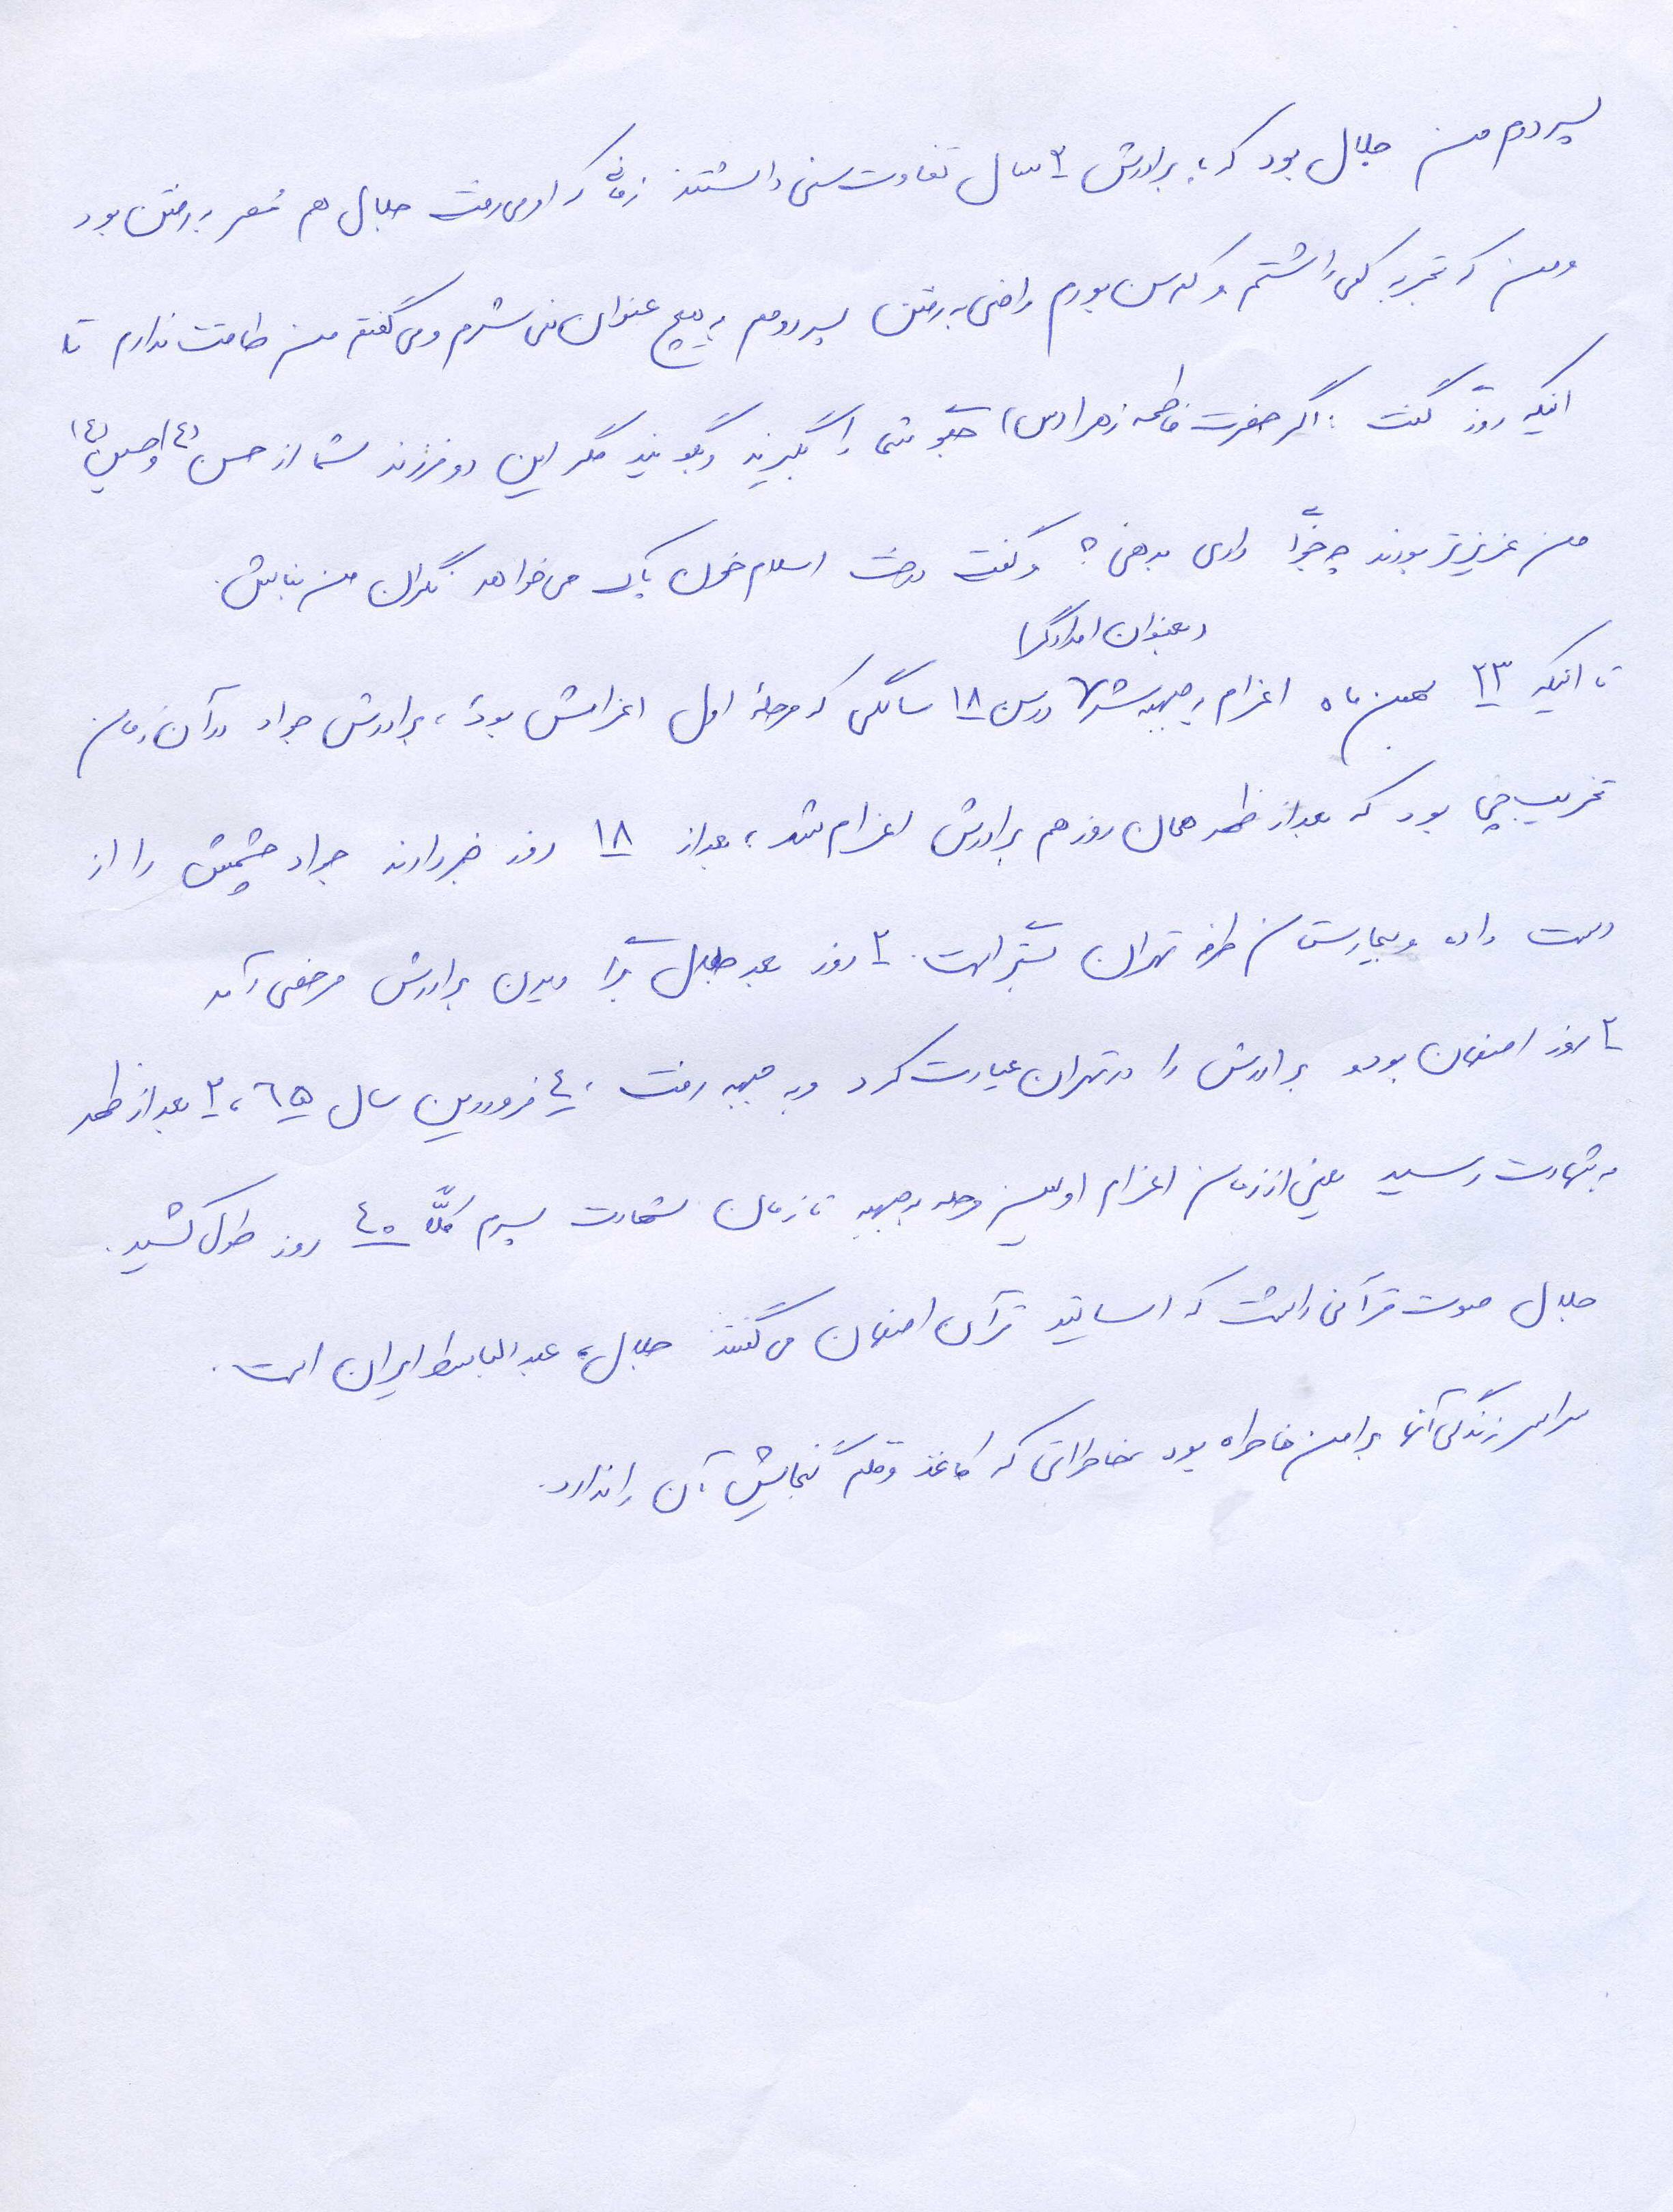 پسر دوم من جلال بود که با برادرش ۲ سال تفاوت سنی داشتند زمانی که او می رفت جلال هم مُصر به رفتن بود
و من که تجربه کمی داشتم و کم سن بودم راضی به رفتن پسر دومم به هیچ عنوان نمی شدم و می گفتم من طاقت ندارم تا
اینکه روزی گفت : اگر حضرت فاطمه زهرا (س) جلوی شما را بگیرند و بگویند مگر این دو فرزند شما از حسن (ع) و حسین (ع)
من عزیزتر بودند چه جوابی داری بدهی ؟ و گفت درخت اسلام خون پاک می خواهد نگران من نباش.
و بعنوان امدادگر
تا اینکه ۲۳ بهمن ماه اعزام به جبهه شد در سن ۱۸ سالگی که مرحلهٔ اول اعزامش بود ، برادرش جواد در آن زمان
تخریب چی بود که بعد از ظهر همان روز هم برادرش اعزام شد ، بعد از ۱۸ روز خبر دادند جواد چشمش را از
دست داده و بیمارستان طرفه تهران بستری است. ۲ روز بعد جلال برای دیدن برادرش مرخصی آمد
۲ روز اصفهان بود و برادرش را در تهران عیادت کرد و به جبهه رفت ، ٤ فروردین سال ٦۵ ، ۲ بعد از ظهر
به شهادت رسید یعنی از زمان اعزام اولین مرحله به جبهه تا زمان شهادت پسرم کلاً ٤۰ روز طول کشید.
جلال صوت قرآنی داشت که اساتید قرآن اصفهان می گفتند جلال، عبدالباسط ایران است.
سراسر زندگی آنها برا من خاطراه بود خاطراتی که کاغذ و قلم گنجایش آن را ندارد.